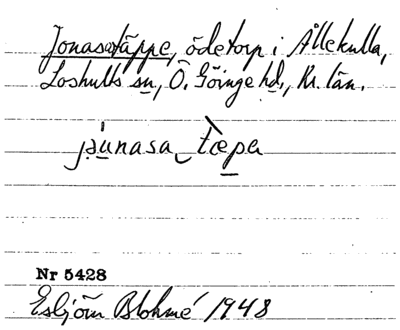 Jonasatäppe, ödetorp i Ållekulla,
Loshults sn, Ö. Göinge hd., Kr. län.
jùnasa‿tæpa
Nr 5428
Esbjörn Blohmé 1948